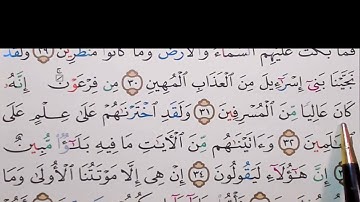 فَمَا بَكَتْ عَلَيْهِمُ السَّمَاءُ وَالْأَرْضُ وَمَا كَانُوا مُنظَرِينَ ٢٩ وَلَقَدْ
نَجَّيْنَا بَنِي إِسْرَاءِيلَ مِنَ الْعَذَابِ الْمُهِينِ ٣٠ مِن فِرْعَوْنَ إِنَّهُ
كَانَ عَالِيًا مِّنَ الْمُسْرِفِينَ ٣١ وَلَقَدِ اخْتَرْنَاهُمْ عَلَىٰ عِلْمٍ عَلَى
الْعَالَمِينَ ٣٢ وَءَاتَيْنَاهُم مِّنَ الْآيَاتِ مَا فِيهِ بَلَاءٌ مُّبِينٌ
٣٣ إِنَّ هَٰؤُلَاءِ لَيَقُولُونَ ٣٤ إِنْ هِيَ إِلَّا مَوْتَتُنَا الْأُولَىٰ وَمَا